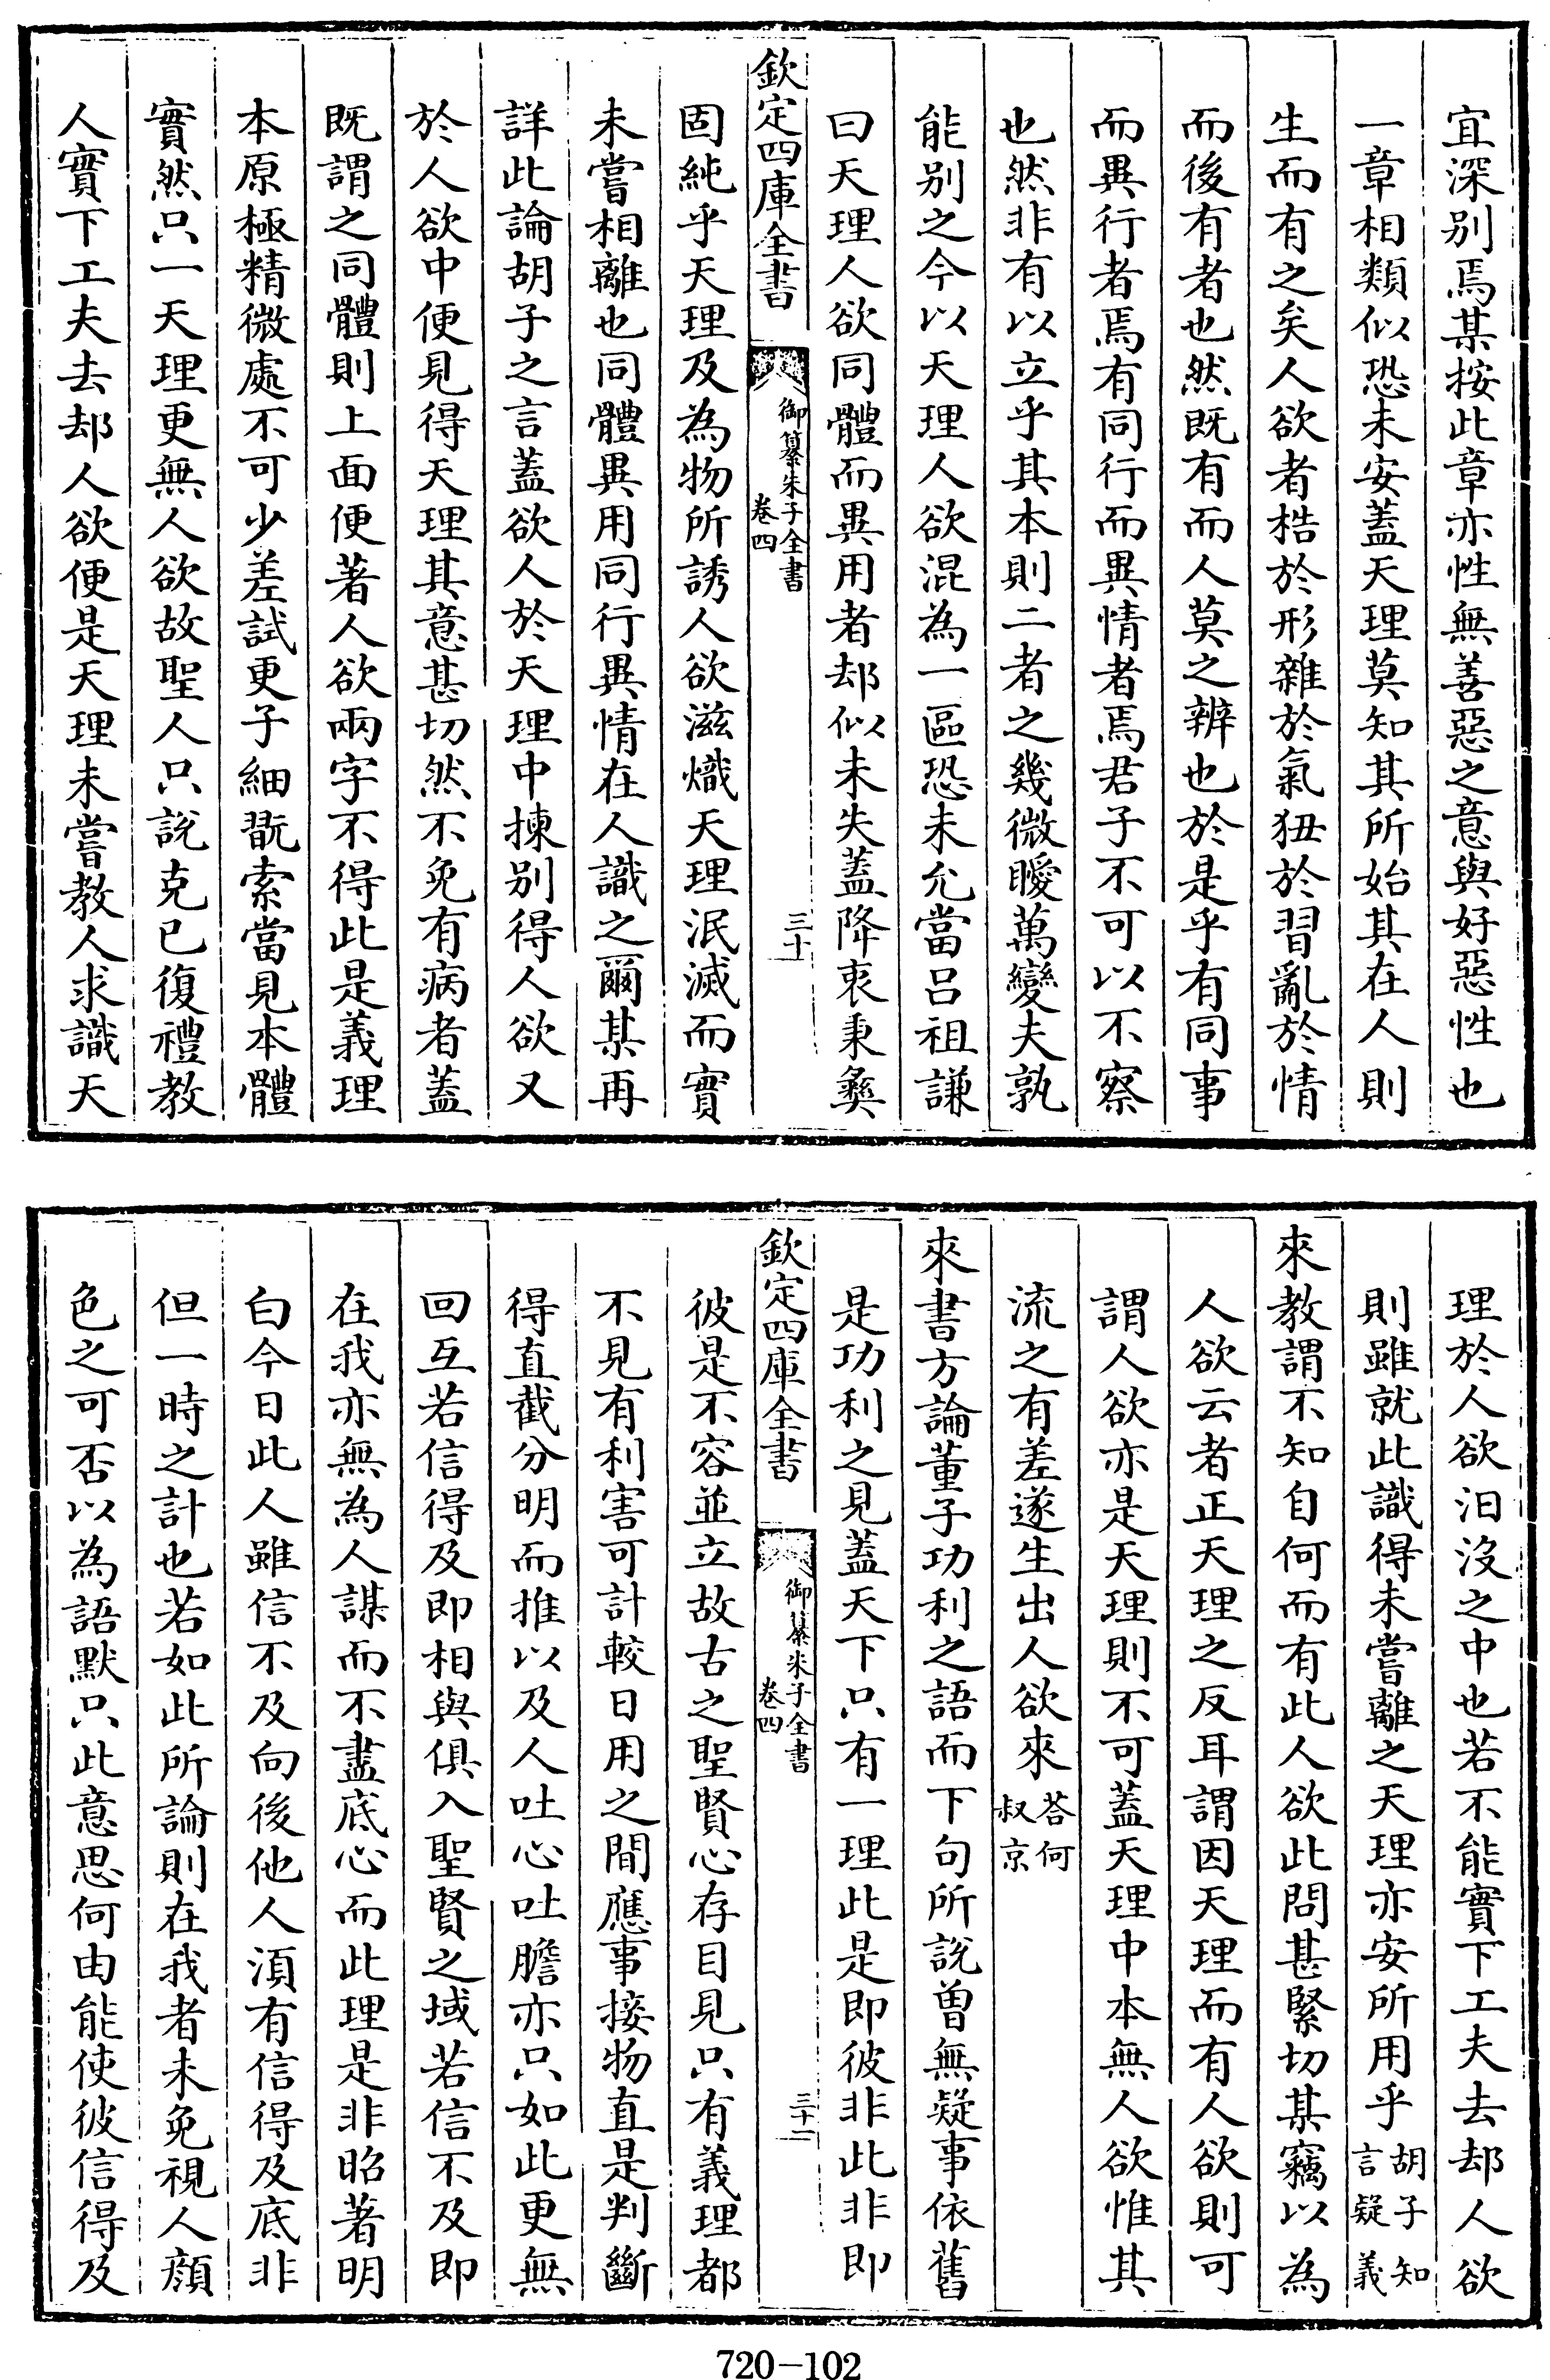 宜深别焉某按此章亦性無善惡之意與好惡性也
一章相類似恐未安蓋天理莫知其所始其在人則
生而有之矣人欲者梏於形雜於氣狃於習亂於情
而後有者也然既有而人莫之辨也於是乎有同事
而異行者焉有同行而異情者焉君子不可以不察
也然非有以立乎其本則二者之幾微曖萬變夫孰
能别之今以天理人欲混為一區恐未允當吕祖謙
曰天理人欲同體而異用者却似未失蓋降衷秉彝
欽定四庫全書
御纂朱子全書
卷四
三十
固純乎天理及為物所誘人欲滋熾天理泯滅而實
未嘗相離也同體異用同行異情在人識之爾某再
詳此論胡子之言蓋欲人於天理中揀别得人欲又
於人欲中便見得天理其意甚切然不免有病者蓋
既謂之同體則上面便著人欲兩字不得此是義理
本原極精微處不可少差試更子細翫索當見本體
實然只一天理更無人欲故聖人只說克已復禮教
人實下工夫去却人欲便是天理未嘗教人求識天
理於人欲汩没之中也若不能實下工夫去却人欲
則雖就此識得未嘗離之天理亦安所用乎胡子知言疑義
來教謂不知自何而有此人欲此問甚緊切某竊以為
人欲云者正天理之反耳謂因天理而有人欲則可
謂人欲亦是天理則不可蓋天理中本無人欲惟其
流之有差遂生出人欲來荅何叔京
來書方論董子功利之語而下句所說曽無疑事依舊
是功利之見蓋天下只有一理此是即彼非此非即
欽定四庫全書
御纂朱子全書
卷四
三十一
彼是不容並立故古之聖賢心存目見只有義理都
不見有利害可計較日用之間應事接物直是判斷
得直截分明而推以及人吐心吐膽亦只如此更無
回互若信得及即相與俱入聖賢之域若信不及即
在我亦無為人謀而不盡底心而此理是非昭著明
白今日此人雖信不及向後他人湏有信得及底非
但一時之計也若如此所論則在我者未免視人顔
色之可否以為語默只此意思何由能使彼信得及
720-102